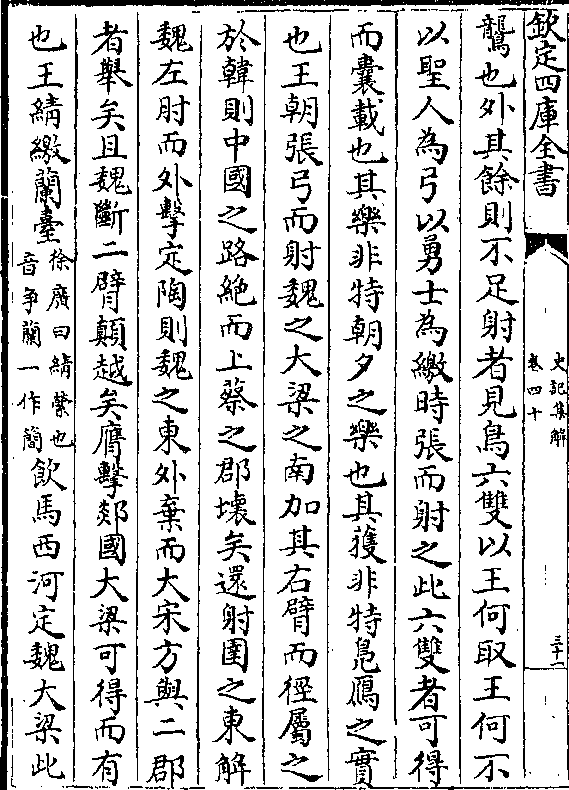 欽定四庫全書
史記集解
卷四十
三十一
鸗也外其餘則不足射者見鳥六雙以王何取王何不
以聖人為弓以勇士為繳時張而射之此六雙者可得
而囊載也其樂非特朝夕之樂也其獲非特鳧鴈之實
也王朝張弓而射魏之大梁之南加其右臂而徑屬之
於韓則中國之路絶而上蔡之郡壊矣還射圉之東解
魏左肘而外擊定陶則魏之東外棄而大宋方與二郡
者舉矣且魏斷二臂顛越矣膺擊郯國大梁可得而有
也王綪繳蘭臺徐廣曰綪縈也音争蘭一作簡飲馬西河定魏大梁此